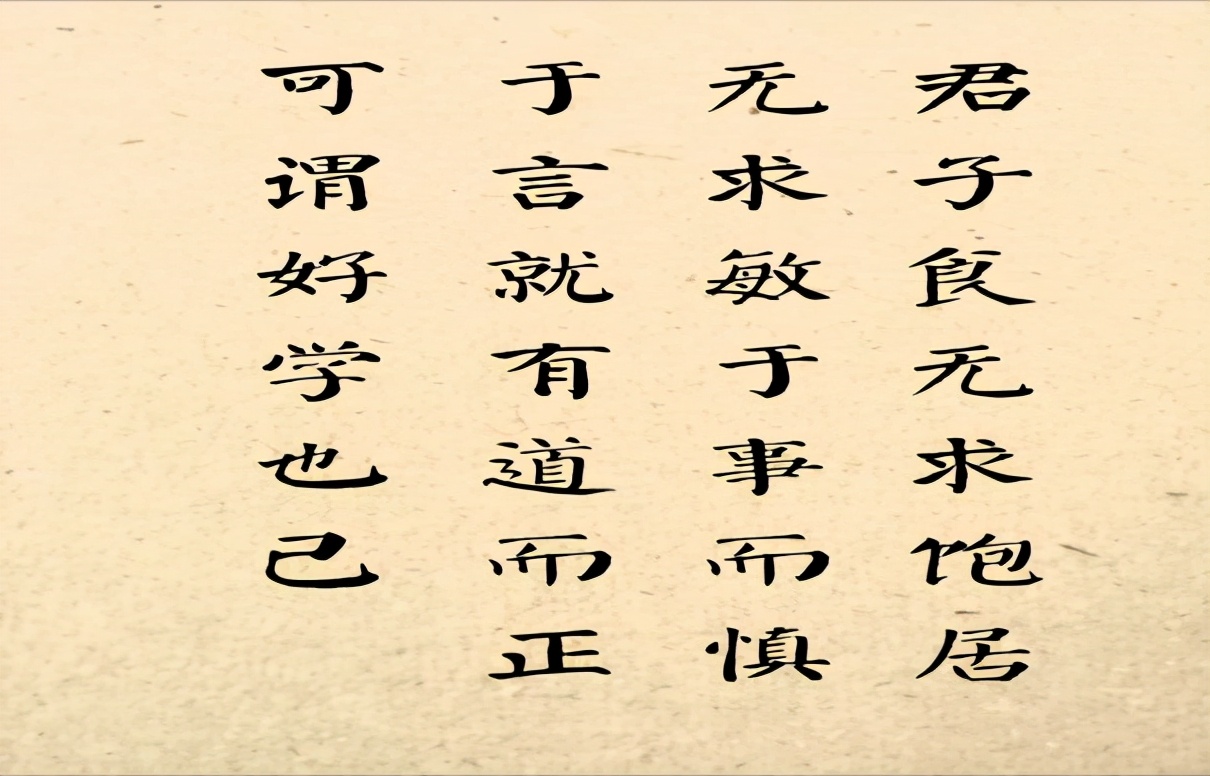 君子食无求饱居
无求敏于事而慎
于言就有道而正
可谓好学也己